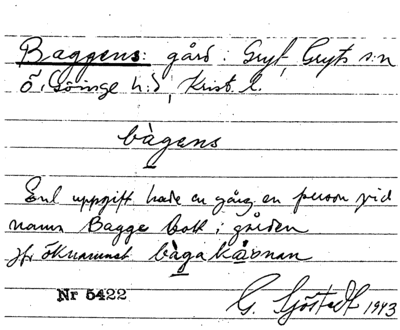 Baggens: gård: Gryt, Gryts s:n
Ö. Göinge h:d, Krist. l.
bàgens
Enl uppgift hade en gång en person vid
namn Bagge bott i gården
jfr öknamnet bàga
Nr 5422
G. Sjöstedt 1943